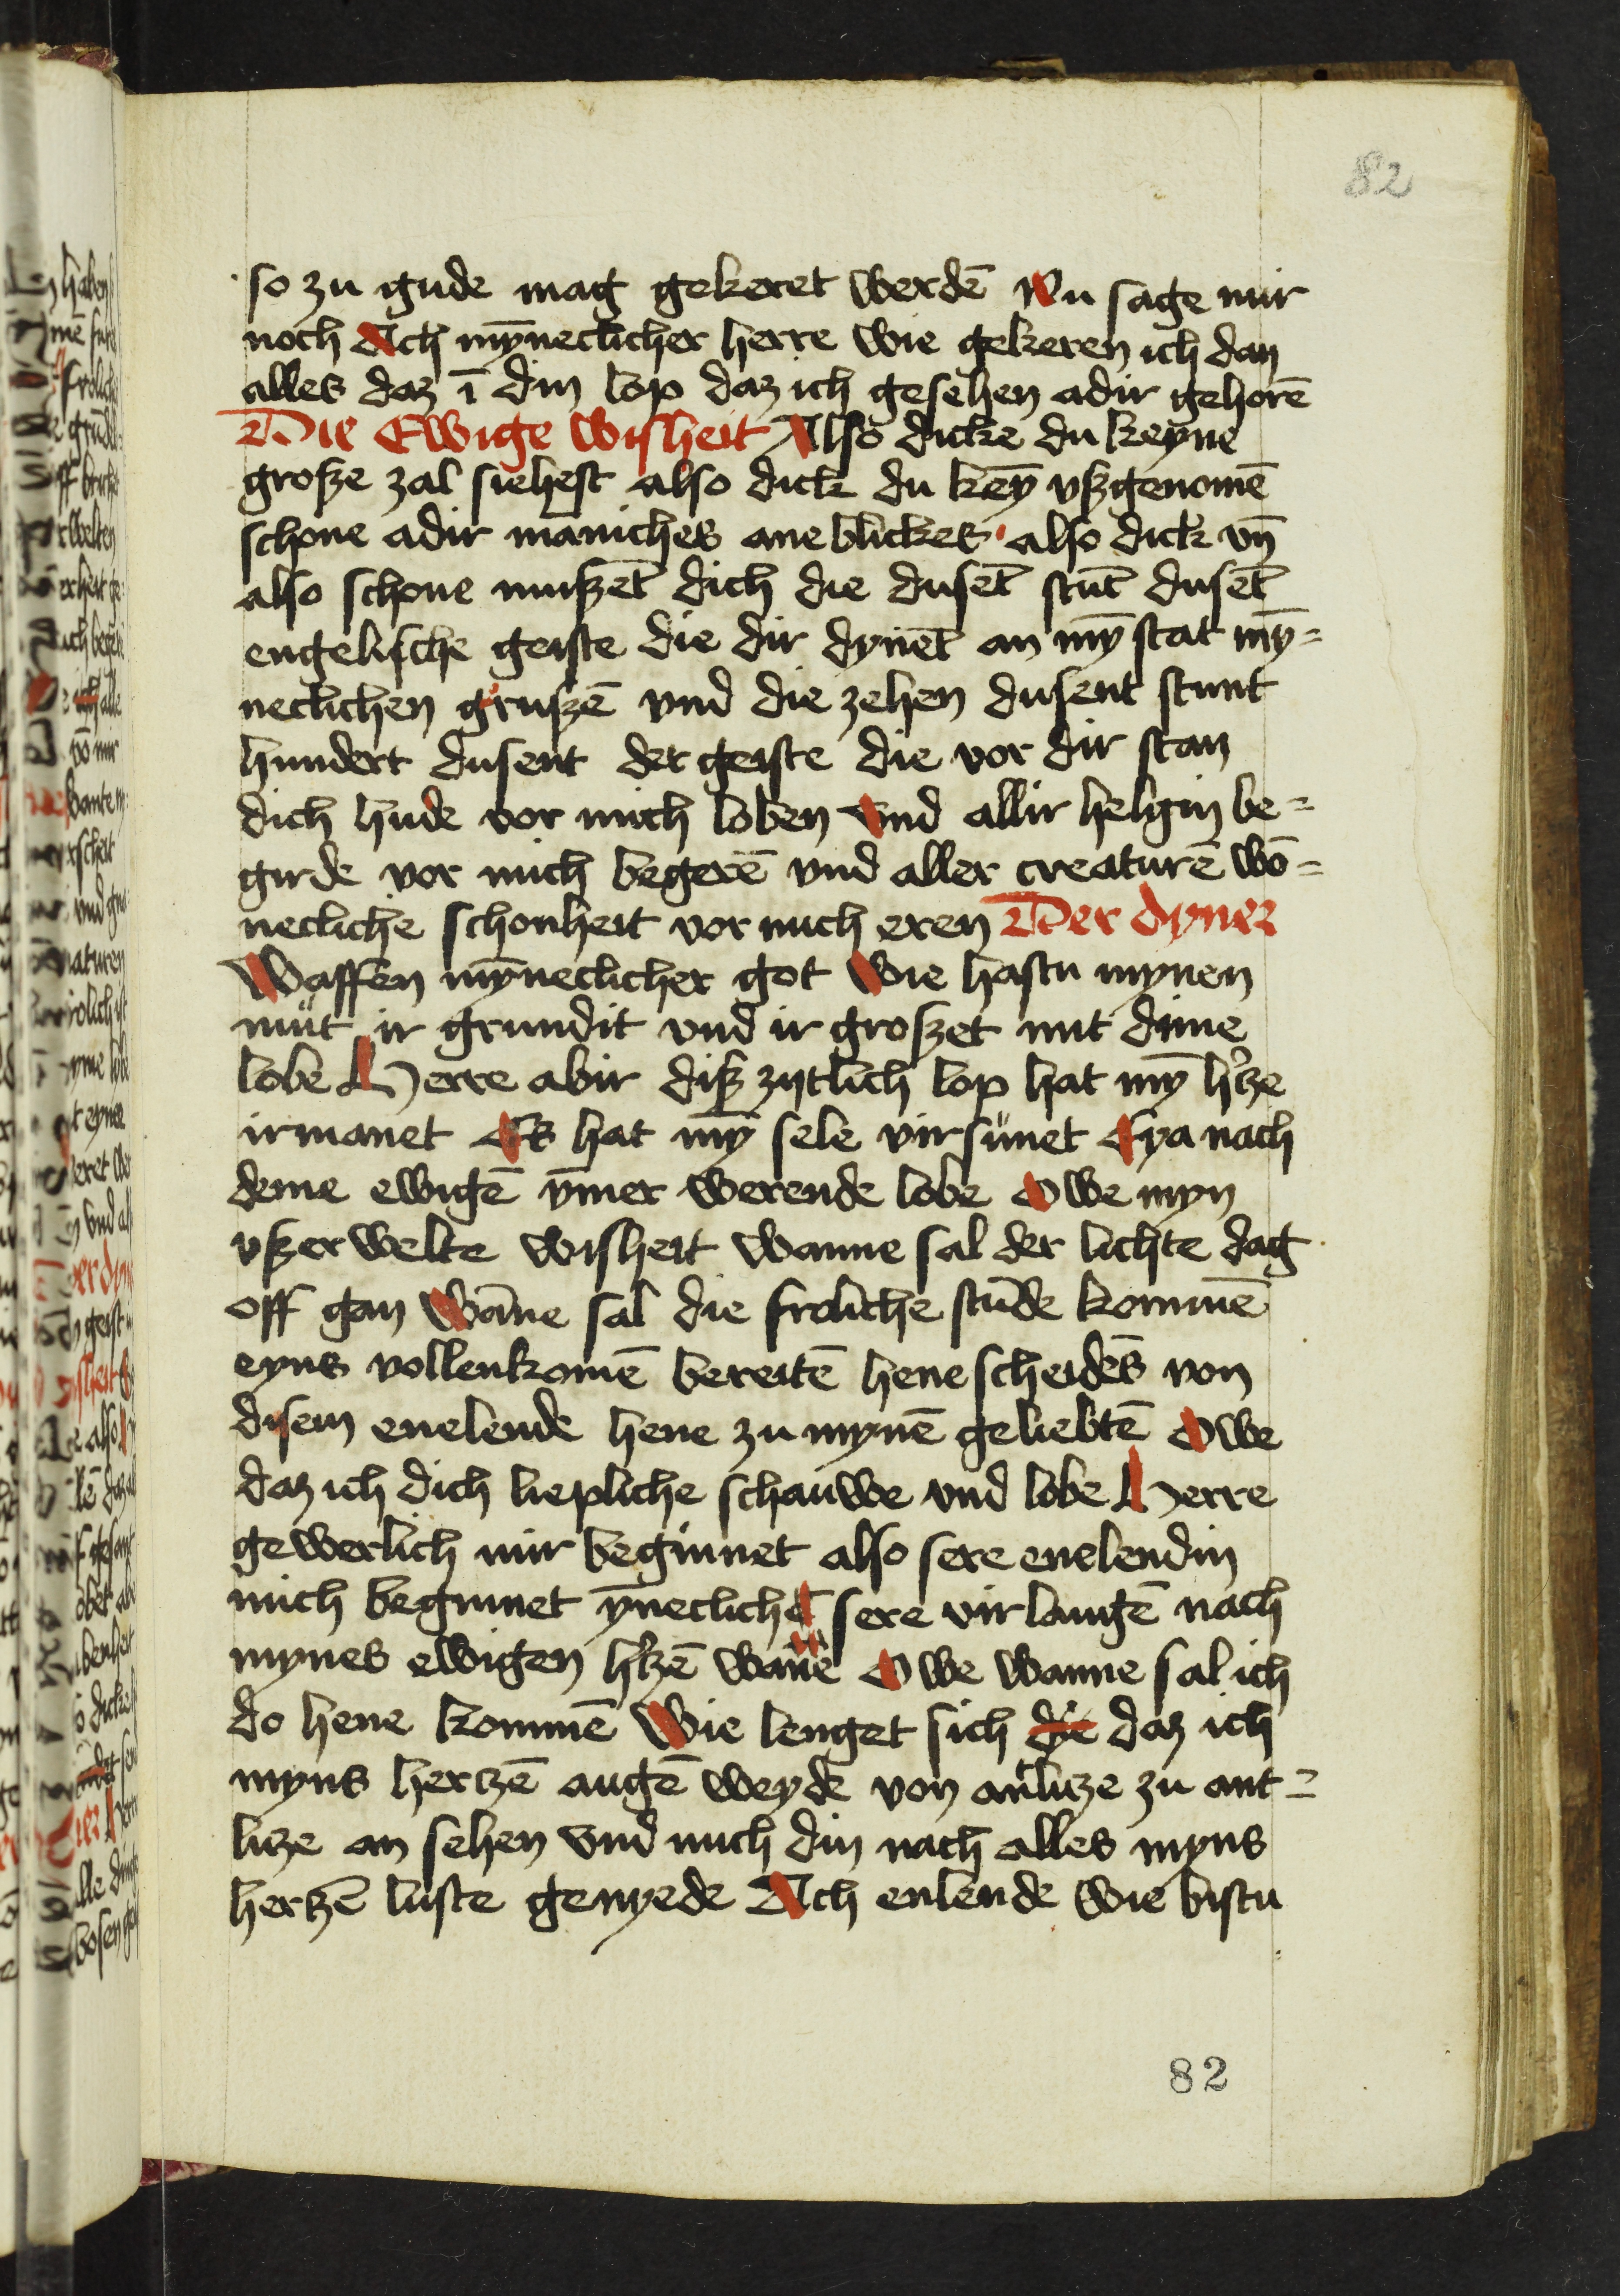 82
so zu gude mag gekeret werdē Nu sage mir
noch Ach mȳneclicher herre wie gekeren ich dan
alles daz ī din lop daz ich gesehen adir gehorē
Die Ewige wisheit Also dicke du keyne
große zal siehest also dick du keȳ vßgenomē
schone adir maniches ane blickes also dick vn̄
also schone mußet̄ dich die duset̄ stūt duset̄
engelische geiste die dir dynet̄ an mȳ stat mȳ=
neclichen grußē vnd die zehen dusent stunt
hundert dusent der geiste die vor dir stan
dich hude vor mich loben vnd allir helgin be=
girde vor mich begerē vnd aller creaturē wō=
necliche schonheit vor mich eren Der dyner
Waffen mȳneclicher got Wie hastu mynen
mut ir grundit vnd ir großet mit dime
lobe Herre abir diß zytlich lop hat mȳ h'tze
irmanet Es hat mȳ sele virsunet Eya nach
deme ewigē ȳmer werende lobe Owe myn
vßerwelte wisheit wanne sal der lichte dag
off gan Wāne sal die froliche stūde kommē
eyns vollenkomē bereitē hene scheidēs von
disem enelende hene zu mynē geliebtē Owe
daz ich dich liepliche schauwe vnd lobe Herre
gewerlich mir beginnet also sere enelendin
mich beginnet ȳnecliche sere virlangē nach
mynes ewigen h'tzē wāne Owe wanne sal ich
do hene kommē Wie lenget sich die daz ich
myns hertzē augē weyde von antlitze zu ant=
litze an sehen vnd mich din nach alles myns
hertzē luste genyede Ach enlende wie bistu
82